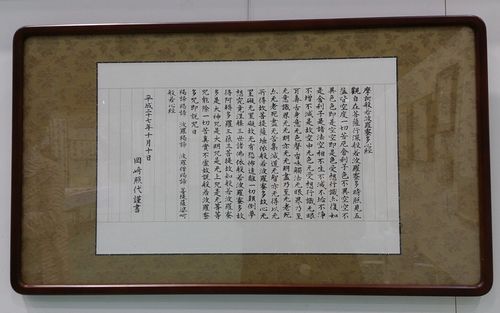 摩訶般若波羅蜜多心経
観自在菩薩行深般若波羅蜜多時照見五
蘊皆空度一切苦厄舎利子色不異空空不
異色色即是空空即是色受想行識亦復如
是舎利子是諸法空相不生不滅不垢不浄
不増不減是故空中无色无受想行識无眼
耳鼻舌身意无色聲香味觸法无眼界乃至
无意識界无无明亦无无明盡乃至无老死
亦无老死盡无苦集滅道无智亦无得以无
所得故菩提薩埵依般若波羅蜜多故心无
罣礙无罣礙故无有恐怖遠離一切顛倒夢
想究竟涅槃三世諸佛依般若波羅蜜多故
得阿耨多羅三藐三菩提故知般若波羅蜜
多是大神咒是大明咒是无上咒是无等等
咒能除一切苦真實不虚故説般若波羅蜜
多咒即説咒曰
羯諦羯諦 波羅羯諦 波羅僧羯諦 菩提薩婆訶
般若心経
平成二十七年十月十日
岡崎照代謹書